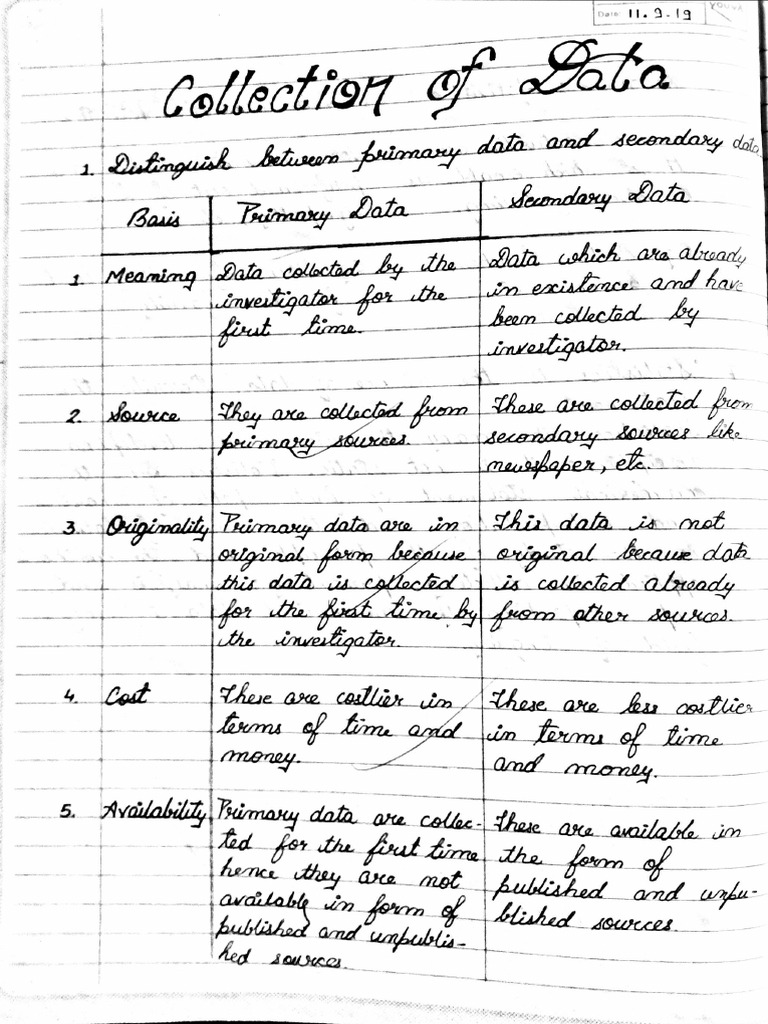 Date: 11.9.19
Collection of Data
1. Distinguish between primary data and secondary data.
Basis
Primary Data
Secondary Data
1. Meaning
Data collected by the
investigator for the
first time.
Data which are already
in existence and have
been collected by
investigator.
2. Source
They are collected from
primary sources.
These are collected from
secondary sources like
newspaper, etc.
3. Originality
Primary data are in
original form because
this data is collected
for the first time by
the investigator.
This data is not
original because data
is collected already
from other sources.
4. Cost
These are costlier in
terms of time and
money.
These are less costlier
in terms of time
and money.
5. Availability
Primary data are collec-
ted for the first time
hence they are not
available in form of
published and unpublis-
hed sources.
These are available in
the form of
published and unpu-
blished sources.